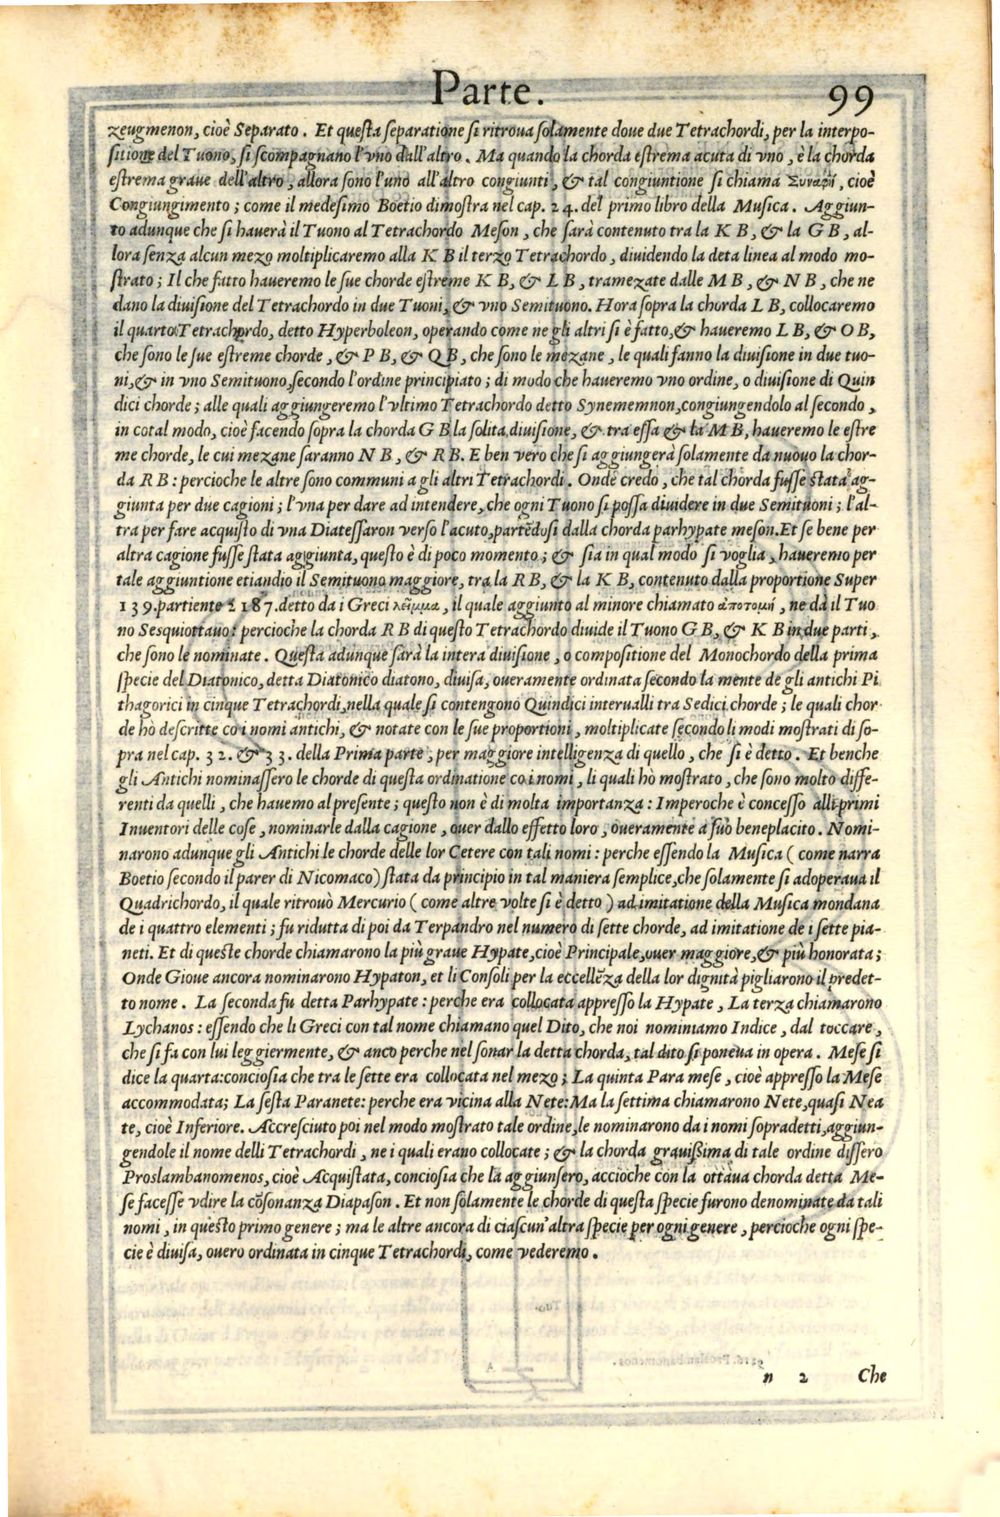 Parte. 99
zeugmenon, cioè Separato. Et questa separatione si ritroua solamente doue due Tetrachordi, per la interpo-
sitione del Tuono, si scompagnano l'vno dall'altro. Ma quando la chorda estrema acuta di vno, è la chorda
estrema graue dell'altro, allora sono l'uno all'altro congiunti, & tal congiuntione si chiama Συναφή, cioè
Congiungimento; come il medesimo Boetio dimostra nel cap. 24. del primo libro della Musica. Aggiun-
to adunque che si hauerà il Tuono al Tetrachordo Meson, che sarà contenuto tra la K B, & la G B, al-
lora senza alcun mezo moltiplicaremo alla K B il terzo Tetrachordo, diuidendo la deta linea al modo mo-
strato; Il che fatto haueremo le sue chorde estreme K B, & L B, tramezate dalle M B, & N B, che ne
dano la diuisione del Tetrachordo in due Tuoni, & vno Semituono. Hora sopra la chorda L B, collocaremo
il quarto Tetrachordo, detto Hyperboleon, operando come ne gli altri si è fatto, & haueremo L B, & O B,
che sono le sue estreme chorde, & P B, & Q B, che sono le mezane, le quali fanno la diuisione in due tuo-
ni, & in vno Semituono, secondo l'ordine principiato; di modo che haueremo vno ordine, o diuisione di Quin
dici chorde; alle quali aggiungeremo l'vltimo Tetrachordo detto Synememnon, congiungendolo al secondo,
in cotal modo, cioè facendo sopra la chorda G B la solita diuisione, & tra essa & la M B, haueremo le estre
me chorde, le cui mezane saranno N B, & R B. E ben vero che si aggiungerà solamente da nuouo la chor-
da R B: percioche le altre sono communi a gli altri Tetrachordi. Onde credo, che tal chorda fusse stata ag-
giunta per due cagioni; l'vna per dare ad intendere, che ogni Tuono si possa diuidere in due Semituoni; l'al-
tra per fare acquisto di vna Diatessaron verso l'acuto, partẽdosi dalla chorda parhypate meson. Et se bene per
altra cagione fusse stata aggiunta, questo è di poco momento; & sia in qual modo si voglia, haueremo per
tale aggiuntione etiandio il Semituono maggiore, tra la R B, & la K B, contenuto dalla proportione Super
139. partiente i 187. detto da i Greci λεῖμμα, il quale aggiunto al minore chiamato ἀποτομή, ne dà il Tuo
no Sesquiottauo: percioche la chorda R B di questo Tetrachordo diuide il Tuono G B, & K B in due parti,
che sono le nominate. Questa adunque sarà la intera diuisione, o compositione del Monochordo della prima
specie del Diatonico, detta Diatonico diatono, diuisa, oueramente ordinata secondo la mente de gli antichi Pi
thagorici in cinque Tetrachordi, nella quale si contengono Quindici interualli tra Sedici chorde; le quali chor
de hò descritte co i nomi antichi, & notate con le sue proportioni, moltiplicate secondo li modi mostrati di so-
pra nel cap. 32. & 33. della Prima parte, per maggiore intelligenza di quello, che si è detto. Et benche
gli Antichi nominassero le chorde di questa ordinatione co i nomi, li quali hò mostrato, che sono molto diffe-
renti da quelli, che hauemo al presente; questo non è di molta importanza: Imperoche è concesso alli primi
Inuentori delle cose, nominarle dalla cagione, ouer dallo effetto loro, oueramente a suo beneplacito. Nomi-
narono adunque gli Antichi le chorde delle lor Cetere con tali nomi: perche essendo la Musica (come narra
Boetio secondo il parer di Nicomaco) stata da principio in tal maniera semplice, che solamente si adoperaua il
Quadrichordo, il quale ritrouò Mercurio (come altre volte si è detto) ad imitatione della Musica mondana
de i quattro elementi; fu ridutta di poi da Terpandro nel numero di sette chorde, ad imitatione de i sette pia-
neti. Et di queste chorde chiamarono la più graue Hypate, cioè Principale, ouer maggiore, & più honorata;
Onde Gioue ancora nominarono Hypaton, et li Consoli per la eccellẽza della lor dignità pigliarono il predet-
to nome. La seconda fu detta Parhypate: perche era collocata appresso la Hypate, La terza chiamarono
Lychanos: essendo che li Greci con tal nome chiamano quel Dito, che noi nominiamo Indice, dal toccare,
che si fa con lui leggiermente, & anco perche nel sonar la detta chorda, tal dito si poneua in opera. Mese si
dice la quarta: conciosia che tra le sette era collocata nel mezo; La quinta Para mese, cioè appresso la Mese
accommodata; La sesta Paranete: perche era vicina alla Nete: Ma la settima chiamarono Nete, quasi Nea
te, cioè Inferiore. Accresciuto poi nel modo mostrato tale ordine, le nominarono da i nomi sopradetti, aggiun-
gendole il nome delli Tetrachordi, ne i quali erano collocate; & la chorda grauißima di tale ordine dissero
Proslambanomenos, cioè Acquistata, conciosia che la aggiunsero, accioche con la ottaua chorda detta Me-
se facesse vdire la cõsonanza Diapason. Et non solamente le chorde di questa specie furono denominate da tali
nomi, in questo primo genere; ma le altre ancora di ciascun'altra specie per ogni genere, percioche ogni spe-
cie è diuisa, ouero ordinata in cinque Tetrachordi, come vederemo.
n 2 Che